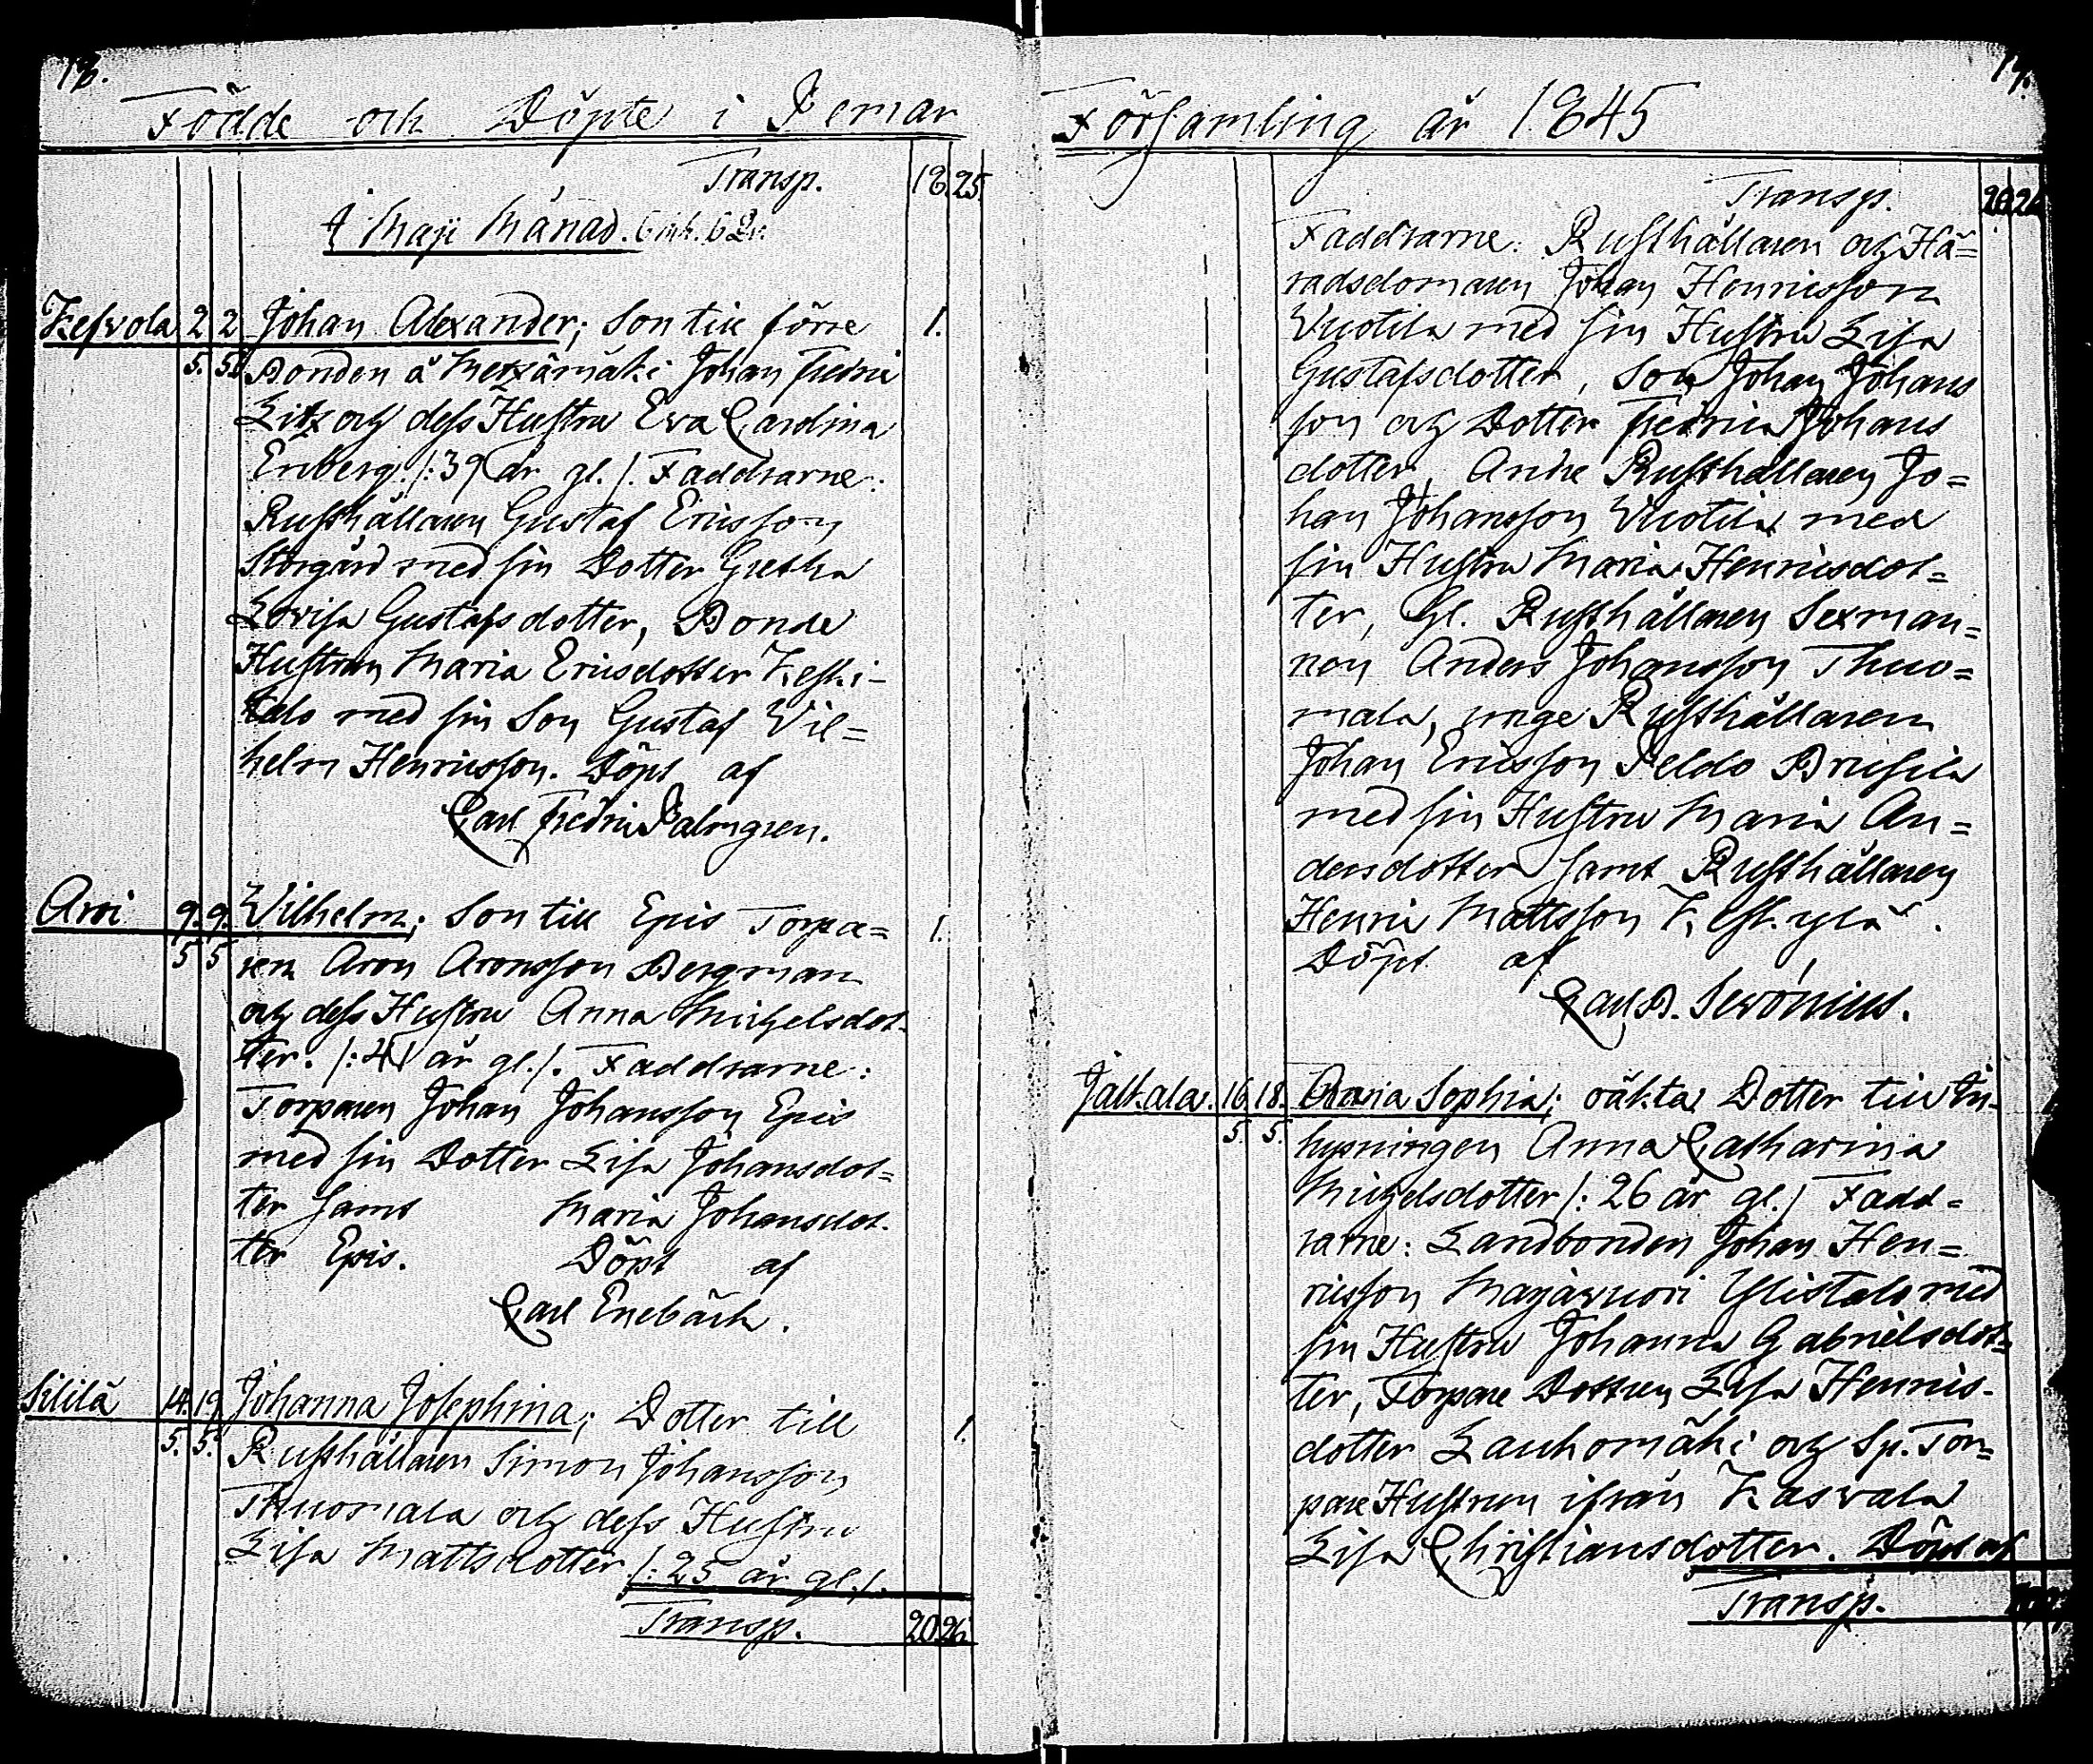 16.
Födde och Döpte i Pemar
Transp. 18. 25.
I Maji Månad.
Kesvola 2 2 Johan Alexander; Son till förre 1.
5. 5. Bonden å Metzämäki Johan Fredric
Litz och dess Hustru Eva Carolina
Enberg. /: 39 år gl. /. Faddrarne:
Rusthållaren Gustaf Ericsson
Storgård med sin Dotter Gretha
Lovisa Gustafsdotter, Bonde
Hustrun Maria Ericsdotter Keski-
talo med sin Son Gustaf Wil=
helm Henricsson. Döpt af
Carl Fredric Palmgren.
Arvi 9. 9. Wilhelm; Son till Epis Torpa= 1.
5 5 ren Aron Aronsson Bergman
och dess Hustru Anna Michelsdot-
ter. /: 41 år gl. /. Faddrarne:
Torparen Johan Johansson Epis
med sin Dotter Lisa Johansdot=
ter samt Maria Johansdot-
ter Epis. Döpt af
Carl Enebäck.
Kililä 14. 19 Johanna Josephina; Dotter till 1.
5. 5. Rusthållaren Simon Johansson
Thuomala och dess Hustru
Lisa Mattsdotter /: 25 år gl. /.
Transp. 20. 26.
17.
Församling år 1845
Transp. 20. 26
Faddrarne: Rusthållaren och Hä=
radsdomaren Johan Henricsson
Wuotila med sin Hustru Lisa
Gustafsdotter, Son Johan Johans
son och Dotter Fredrica Johans
dotter, Andre Rusthållaren Jo=
han Johansson Wuotila med
sin Hustru Maria Henricsdot=
ter, Gl. Rusthållaren Sexman=
nen Anders Johansson Thuo=
mala, unge Rusthållaren
Johan Ericsson Peldo Brusila
med sin Hustru Maria An=
dersdotter samt Rusthållaren
Henric Mattsson Kesk.ylä.
Döpt af
Carl B. Serónius.
Jalkala. 16 18. Maria Sophia; oäkta Dotter till In-
5. 5. hysningen Anna Catharina
Michelsdotter /: 26 år gl. / Fadd=
rarne: Landbonden Johan Hen=
ricsson Majavuori Ylistalo med
sin Hustru Johanna Gabrielsdot=
ter, Torpare Dottren Lisa Henrics-
dotter Laukomäki och Sp. Tor=
pare Hustrun ifrån Kasvala
Lisa Christiansdotter. Döpt af
Transp.